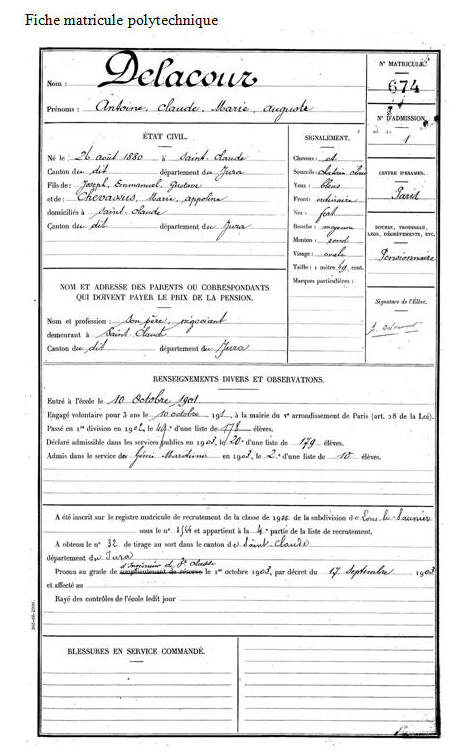 Fiche matricule polytechnique
Nom : Delacour
Prénoms : Antoine, Claude, Marie, Auguste
N° MATRICULE
674
N° D'ADMISSION
1
ÉTAT CIVIL.
Né le 26 août 1880 à Saint-Claude
Canton du dit département du Jura
Fils de : Joseph, Emmanuel, Gustave
et de : Chevassus, Marie, Appoline
domiciliés à Saint-Claude
Canton du dit département du Jura
NOM ET ADRESSE DES PARENTS OU CORRESPONDANTS
QUI DOIVENT PAYER LE PRIX DE LA PENSION.
Nom et profession : son père, négociant
demeurant à Saint Claude
Canton du dit département du Jura
SIGNALEMENT.
Cheveux : et
Sourcils : châtain clair
Yeux : bleus
Front : ordinaire
Nez : fort
Bouche : moyenne
Menton : rond
Visage : ovale
Taille : 1 mètre 49 cent.
Marques particulières :
CENTRE D'EXAMEN.
Paris
BOURSE, TROUSSEAU,
LEGS, DÉGRÈVEMENTS, ETC.
Pensionnaire
Signature de l'Élève.
RENSEIGNEMENTS DIVERS ET OBSERVATIONS.
Entré à l'école le 10 Octobre 1901
Engagé volontaire pour 3 ans le 10 octobre 191, à la mairie du Vᵉ arrondissement de Paris (art. 28 de la Loi).
Passé en 1ʳᵉ division en 1902, le ᵉ d'une liste de 178 élèves.
Déclaré admissible dans les services publics en 1903, le 20ᵉ d'une liste de 179 élèves.
Admis dans le service du Génie Maritime en 1903, le 2ᵉ d'une liste de 10 élèves.
A été inscrit sur le registre matricule de recrutement de la classe de 1900 de la subdivision de Lons-le-Saunier
sous le n° et appartient à la 4ᵉ partie de la liste de recrutement.
A obtenu le n° 32 de tirage au sort dans le canton de Saint-Claude
département du Jura
d'Ingénieur de 3ᵉ classe
Promu au grade de sous-lieutenant de réserve le 1ᵉʳ octobre 1903, par décret du 17 Septembre 1903
et affecté au
Rayé des contrôles de l'école ledit jour
BLESSURES EN SERVICE COMMANDÉ.